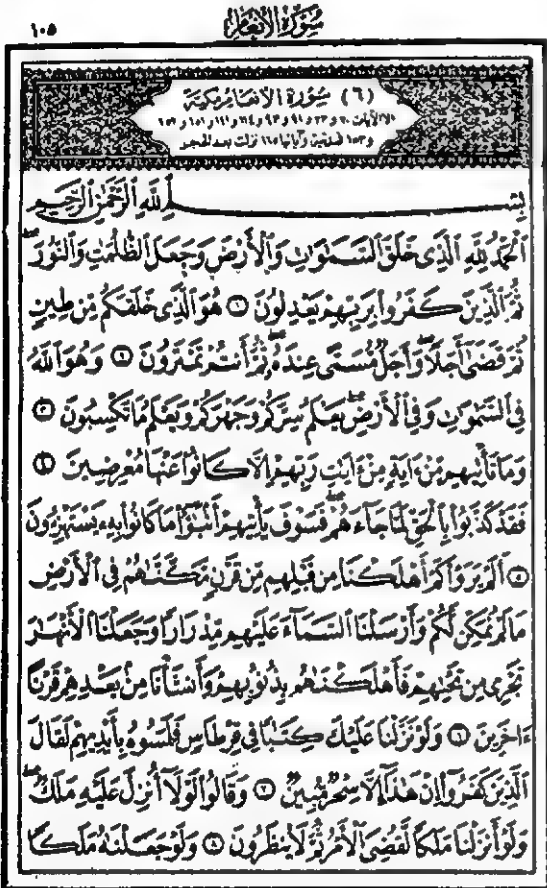 ١٠٥ سُورَةُ الأَنعَامِ
(٦) سُورَةُ الأنعَامِ مَكيّة
الا الآيات ٢٠ و٢٣ و٩١ و٩٣ و١١٤ و١٤١ و١٥١ و١٥٢
و١٥٣ فمدنية وآياتها ١٦٥ نزلت بعد الحجر
بِسْمِ ٱللَّهِ ٱلرَّحْمَٰنِ ٱلرَّحِيمِ
ٱلْحَمْدُ لِلَّهِ ٱلَّذِى خَلَقَ ٱلسَّمَٰوَٰتِ وَٱلْأَرْضَ وَجَعَلَ ٱلظُّلُمَٰتِ وَٱلنُّورَۖ
ثُمَّ ٱلَّذِينَ كَفَرُوا۟ بِرَبِّهِمْ يَعْدِلُونَ ۝١ هُوَ ٱلَّذِى خَلَقَكُم مِّن طِينٍ
ثُمَّ قَضَىٰٓ أَجَلًاۖ وَأَجَلٌ مُّسَمًّى عِندَهُۥۖ ثُمَّ أَنتُمْ تَمْتَرُونَ ۝٢ وَهُوَ ٱللَّهُ
فِى ٱلسَّمَٰوَٰتِ وَفِى ٱلْأَرْضِۖ يَعْلَمُ سِرَّكُمْ وَجَهْرَكُمْ وَيَعْلَمُ مَا تَكْسِبُونَ ۝٣
وَمَا تَأْتِيهِم مِّنْ ءَايَةٍ مِّنْ ءَايَٰتِ رَبِّهِمْ إِلَّا كَانُوا۟ عَنْهَا مُعْرِضِينَ ۝٤
فَقَدْ كَذَّبُوا۟ بِٱلْحَقِّ لَمَّا جَآءَهُمْۖ فَسَوْفَ يَأْتِيهِمْ أَنۢبَٰٓؤُا۟ مَا كَانُوا۟ بِهِۦ يَسْتَهْزِءُونَ
۝٥ أَلَمْ يَرَوْا۟ كَمْ أَهْلَكْنَا مِن قَبْلِهِم مِّن قَرْنٍ مَّكَّنَّٰهُمْ فِى ٱلْأَرْضِ
مَا لَمْ نُمَكِّن لَّكُمْ وَأَرْسَلْنَا ٱلسَّمَآءَ عَلَيْهِم مِّدْرَارًا وَجَعَلْنَا ٱلْأَنْهَٰرَ
تَجْرِى مِن تَحْتِهِمْ فَأَهْلَكْنَٰهُم بِذُنُوبِهِمْ وَأَنشَأْنَا مِنۢ بَعْدِهِمْ قَرْنًا
ءَاخَرِينَ ۝٦ وَلَوْ نَزَّلْنَا عَلَيْكَ كِتَٰبًا فِى قِرْطَاسٍ فَلَمَسُوهُ بِأَيْدِيهِمْ لَقَالَ
ٱلَّذِينَ كَفَرُوٓا۟ إِنْ هَٰذَآ إِلَّا سِحْرٌ مُّبِينٌ ۝٧ وَقَالُوا۟ لَوْلَآ أُنزِلَ عَلَيْهِ مَلَكٌۖ
وَلَوْ أَنزَلْنَا مَلَكًا لَّقُضِىَ ٱلْأَمْرُ ثُمَّ لَا يُنظَرُونَ ۝٨ وَلَوْ جَعَلْنَٰهُ مَلَكًا